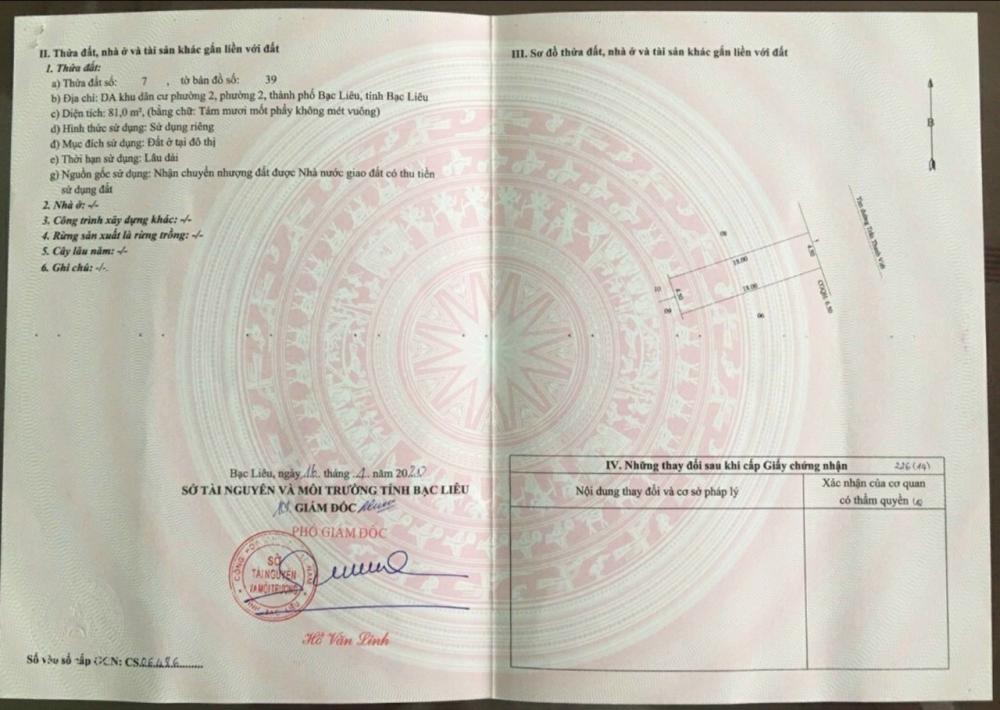 II. Thửa đất, nhà ở và tài sản khác gắn liền với đất
1. Thửa đất:
a) Thửa đất số: 7 , tờ bản đồ số: 39
b) Địa chỉ: DA khu dân cư phường 2, phường 2, thành phố Bạc Liêu, tỉnh Bạc Liêu
c) Diện tích: 81,0 m², (bằng chữ: Tám mươi mốt phẩy không mét vuông)
d) Hình thức sử dụng: Sử dụng riêng
đ) Mục đích sử dụng: Đất ở tại đô thị
e) Thời hạn sử dụng: Lâu dài
g) Nguồn gốc sử dụng: Nhận chuyển nhượng đất được Nhà nước giao đất có thu tiền
sử dụng đất
2. Nhà ở: -/-
3. Công trình xây dựng khác: -/-
4. Rừng sản xuất là rừng trồng: -/-
5. Cây lâu năm: -/-
6. Ghi chú: -/-
Bạc Liêu, ngày 16 tháng 1 năm 2020
SỞ TÀI NGUYÊN VÀ MÔI TRƯỜNG TỈNH BẠC LIÊU
GIÁM ĐỐC
PHÓ GIÁM ĐỐC
SỞ
TÀI NGUYÊN
VÀ MÔI TRƯỜNG
Hồ Văn Linh
Số vào sổ cấp GCN: CS06486
III. Sơ đồ thửa đất, nhà ở và tài sản khác gắn liền với đất
B
Tim đường Trần Thanh Viết
08
1
4.50
18.00
10
4.50
18.00
CGQH: 6.50
09
06
IV. Những thay đổi sau khi cấp Giấy chứng nhận
226(14)
Nội dung thay đổi và cơ sở pháp lý
Xác nhận của cơ quan
có thẩm quyền